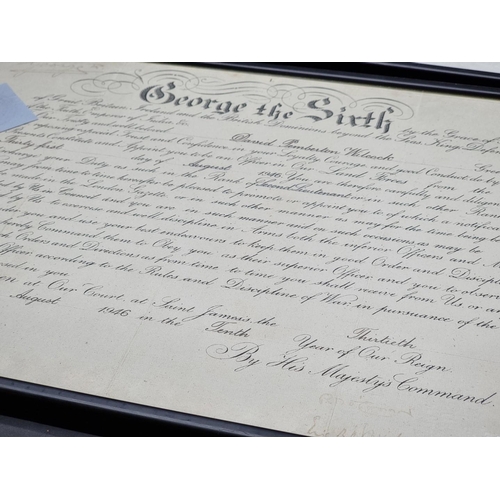 George the Sixth
by the Grace of
Great Britain, Ireland and the British Dominions beyond the Seas, King, Def
Emperor of India, &c.
David Pemberton Wilcock
Trust and Confidence in your Loyalty, Courage, and good Conduct, do
Constitute and Appoint you to be an Officer in Our Land Forces from the
first day of August 1946. You are therefore carefully and diligen
your Duty as such in the Rank of Second Lieutenant or in such other Rank
from time to time hereafter be pleased to promote or appoint you to, of which a notifica
made in the London Gazette, or in such other manner as may for the time being
by Us in Council, and you are in such manner and on such occasions as may be
by Us to exercise and well discipline in Arms both the inferior Officers and
you and use your best endeavours to keep them in good Order and Discipl
Command them to Obey you as their superior Officer, and you to observe
Orders and Directions as from time to time you shall receive from Us, or
Officer, according to the Rules and Discipline of War, in pursuance of the
in you.
at Our Court, at Saint James's, the Thirtieth
August 1946 in the Tenth Year of Our Reign.
By His Majesty's Command.